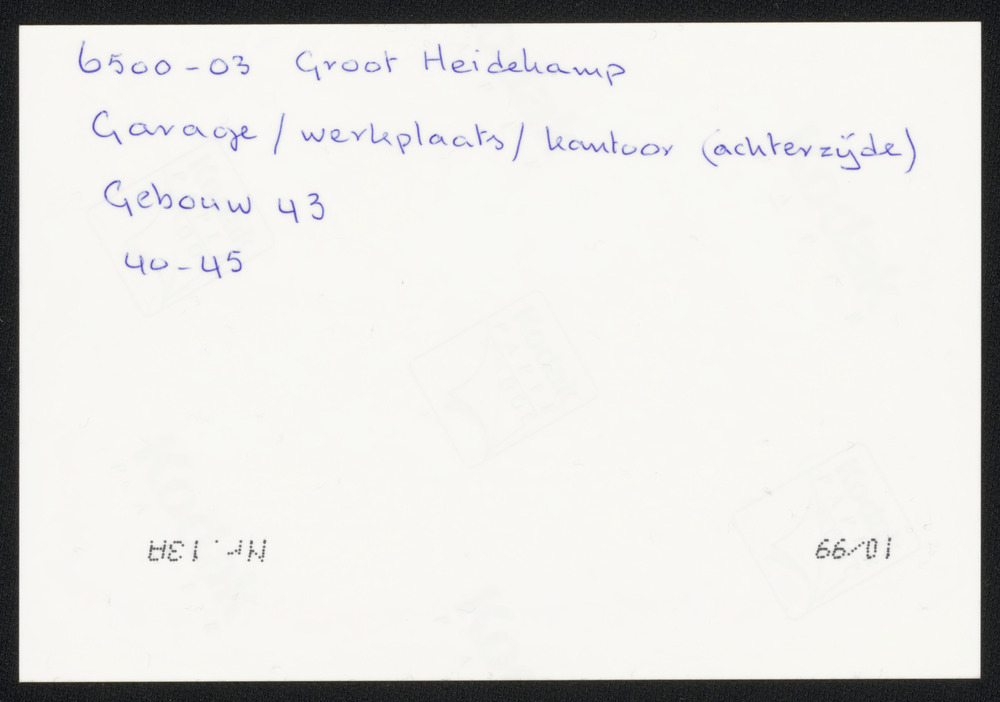 6500-03 Groot Heidekamp
Garage / werkplaats / kantoor (achterzijde)
Gebouw 43
40-45
10/99 Nr. 13A